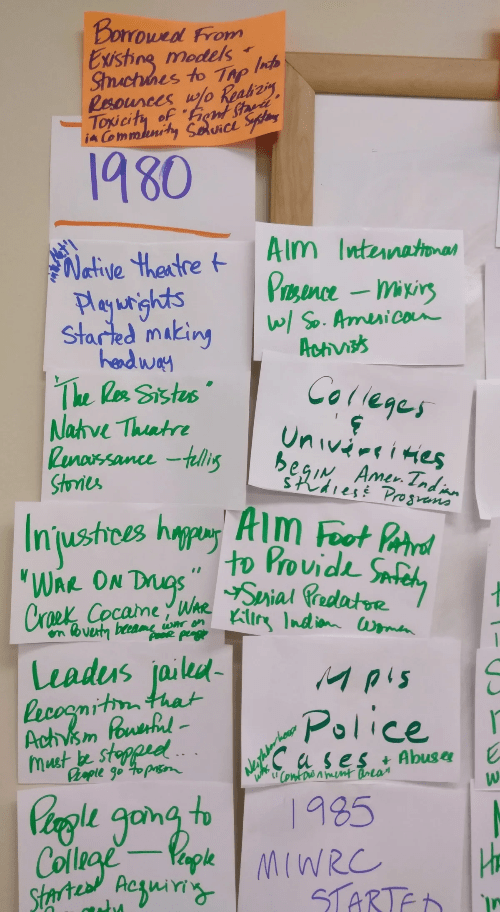 Borrowed From
Existing models +
Structures to Tap Into
Resources w/o Realizing
Toxicity of "Fight Stance"
in Community Service Systems
1980
Native theatre +
Playwrights
Started making
headway
"The Rez Sisters"
Native Theatre
Renaissance - telling
Stories
Injustices happening
"WAR ON Drugs"
Crack Cocaine / WAR
on Poverty became war on
poor people
Leaders jailed -
Recognition that
Activism Powerful -
must be stopped...
People go to prison
People going to
College — People
Started Acquiring
AIM International
Presence — Mixing
w/ So. American
Activists
Colleges
&
Universities
begin Amer. Indian
Studies & Programs
AIM Foot Patrol
to Provide Safety
→ Serial Predator
Killing Indian Women
Mpls
Police
Cases + Abuses
"Containment Areas"
1985
MIWRC
STARTED